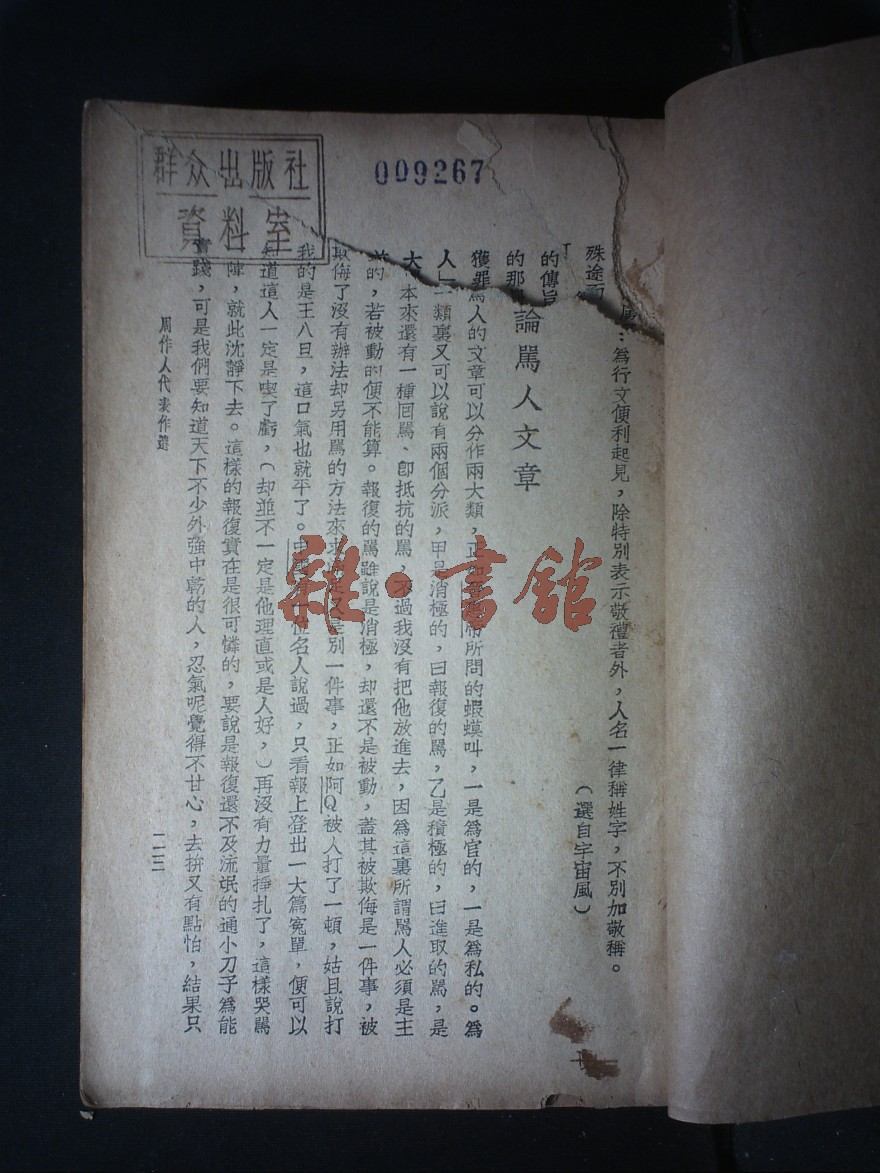 群众出版社
資料室
009267
：為行文便利起見，除特別表示敬禮者外，人名一律稱姓字，不別加敬稱。
殊途
（選自宇宙風）
的傳旨
的那
論罵人文章
獲罪罵人的文章可以分作兩大類，正如 帝所問的蝦蟆叫，一是為官的，一是為私的。為
人」一類裏又可以說有兩個分派，甲是消極的，曰報復的罵，乙是積極的，曰進取的罵，是
大 本來還有一種回罵、卽抵抗的罵，不過我沒有把他放進去，因為這裏所謂罵人必須是主
的，若被動的便不能算。報復的罵雖說是消極，却還不是被動，蓋其被欺侮是一件事，被
欺侮了沒有辦法却另用罵的方法來求 又是別一件事，正如阿Q被人打了一頓，姑且說打
我的是王八旦，這口氣也就平了。中 有一位名人說過，只看報上登出一大篇寃單，便可以
知道這人一定是喫了虧，（却並不一定是他理直或是人好，）再沒有力量掙扎了，這樣哭罵
陣，就此沈靜下去。這樣的報復實在是很可憐的，要說是報復還不及流氓的通小刀子為能
實踐，可是我們要知道天下不少外強中乾的人，忍氣呢覺得不甘心，去拚又有點怕，結果只
周作人代表作選
二一三
雜·書舘